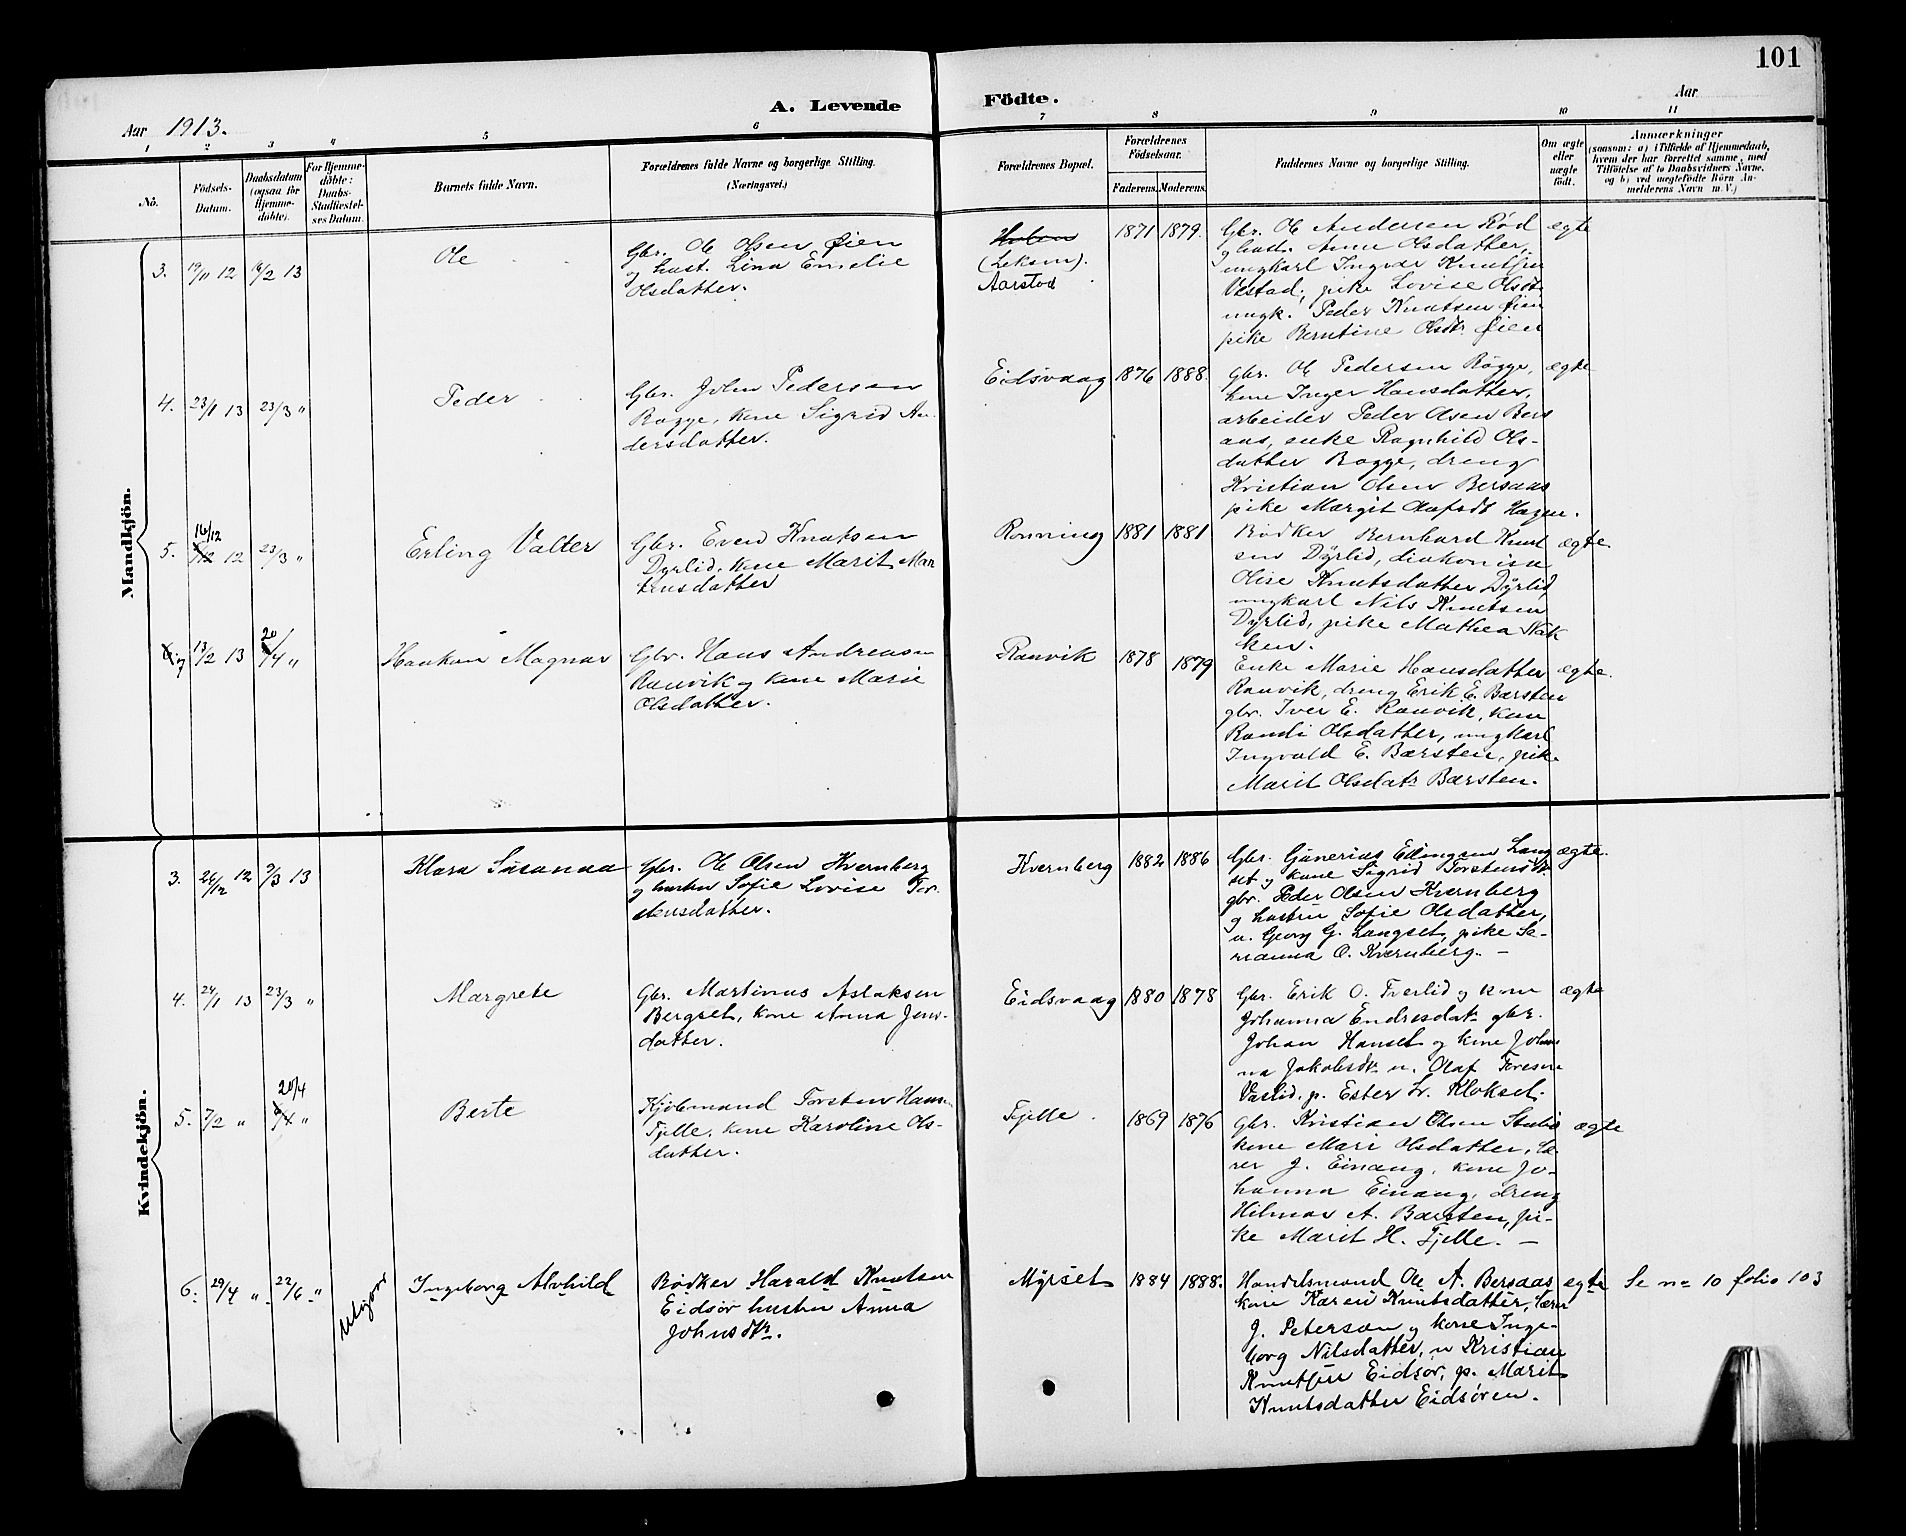 101
A. Levende Födte.
Aar 1913.
Aar
1 2 3 4 5 6 7 8 9 10 11
No.
Födsels-
Datum.
Daabsdatum
(ogsaa for
Hjemme-
döbte).
For Hjemme-
döbte:
Daabs-
Stadfæstel-
ses Datum.
Barnets fulde Navn.
Forældrenes fulde Navne og borgerlige Stilling.
(Næringsvei.)
Forældrenes Bopæl.
Forældrenes
Födselsaar.
Faderens. Moderens.
Faddernes Navne og borgerlige Stilling.
Om ægte
eller
uægte
födt.
Anmærkninger
(saasom: a) i Tilfælde af Hjemmedaab,
hvem der har forrettet samme, med
Tilföielse af to Daabsvidners Navne,
og b) ved uægtefödte Börn An-
melderens Navn m. V.)
Mandkjön.
3. 19/11 12 16/2 13
Ole
Gbr. Ole Olsen Øien
og hust. Lina Emelie
Olsdatter.
Holen
(Leksm).
Aarstad
1871 1879.
Gbr. Ole Andersen Rød
og hust. Anne Olsdatter,
ungkarl Ingvar Knutsen
Vestad, pike Lovise Olsdt
ungk. Peder Knutsen Øien
pike Berntine Olsdtr. Øien
ægte
4. 23/1 13 23/3 "
Peder
Gbr. John Pedersen
Røgge, kone Sigrid An-
dersdatter.
Eidsvaag 1876 1888.
Gbr. Ole Pedersen Røgge,
kone Inger Hansdatter,
arbeider Peder Olsen Bers
aas, enke Ragnhild Ols-
datter Bogge, dreng
Kristian Olsen Bersaas
pike Margit Olafsdt Hagen.
ægte
5. 16/12 12 23/3 "
Erling Valter
Gbr. Even Knutsen
Dyrlid, kone Marit Mar
tinusdatter
Rønning 1881 1881
Bødker Bernhard Knut
sen Dyrlid, diakonisse
Olise Knutsdatter Dyrlid
ungkarl Nils Knutsen
Dyrlid, pike Mathea Nak
ken.
ægte.
13/2 13 20/4 "
Haakon Magnar
Gbr. Hans Andreasen
Ranvik og kone Marie
Olsdatter.
Ranvik 1878 1879
Enke Marie Hansdatter
Ranvik, dreng Erik E. Bærsten
gbr. Iver E. Ranvik, kone
Randi Olsdatter, ungkarl
Ingvald E. Bærsten, pike
Marit Olsdatr Bærsten.
ægte.
Kvindekjön.
3. 26/12 12 9/3 13
Klara Susanna
Gbr. Ole Olsen Kvernberg
og hustru Sofie Lovise Tor-
stensdatter.
Kvernberg 1882 1886
Gbr. Gunerius Ellingsen Lang
set og kone Sigrid Torstensdtr
gbr. Peder Olsen Kvernberg
og hustru Sofie Olsdatter,
u. Georg G. Langset, pike Se-
rianna O. Kvernberg. —
ægte.
4. 24/1 13 23/3 "
Margrete
Gbr. Martinus Aslaksen
Bergset, kone Anna Jens-
datter.
Eidsvaag 1880 1878
Gbr. Erik O. Tverlid og kone
Johanna Endresdatr gbr.
Johan Hanset og kone Johan
na Jakobsdtr u. Olaf Toresen
Vaslid. p. Ester Fr. Klokset.
ægte
5. 7/2 " 20/4 "
Berte
Kjøbmand Torsten Hansen
Tjelle, kone Karoline Ols-
datter.
Tjelle. 1869 1876
Gbr. Kristian Olsen Stubø
kone Mari Olsdatter, læ-
rer J. Einang, kone Jo-
hanna Einang, dreng
Hilmar A. Bærsten, pi-
ke Marit H. Tjelle. —
ægte
6. 29/4 " 22/6 "
Utgaar
Ingeborg Alvhild
Bødker Harald Knutsen
Eidsør hustru Anna
Johnsdtr.
Myrset 1884 1888.
Handelsmand Ole A. Bersaas
kone Karen Knutsdatter, lærer
J. Peterson og kone Inge-
borg Nilsdatter, u Kristian
Knutsen Eidsør, p. Marit
Knutsdatter Eidsøren.
ægte
Se no 10 folio 103